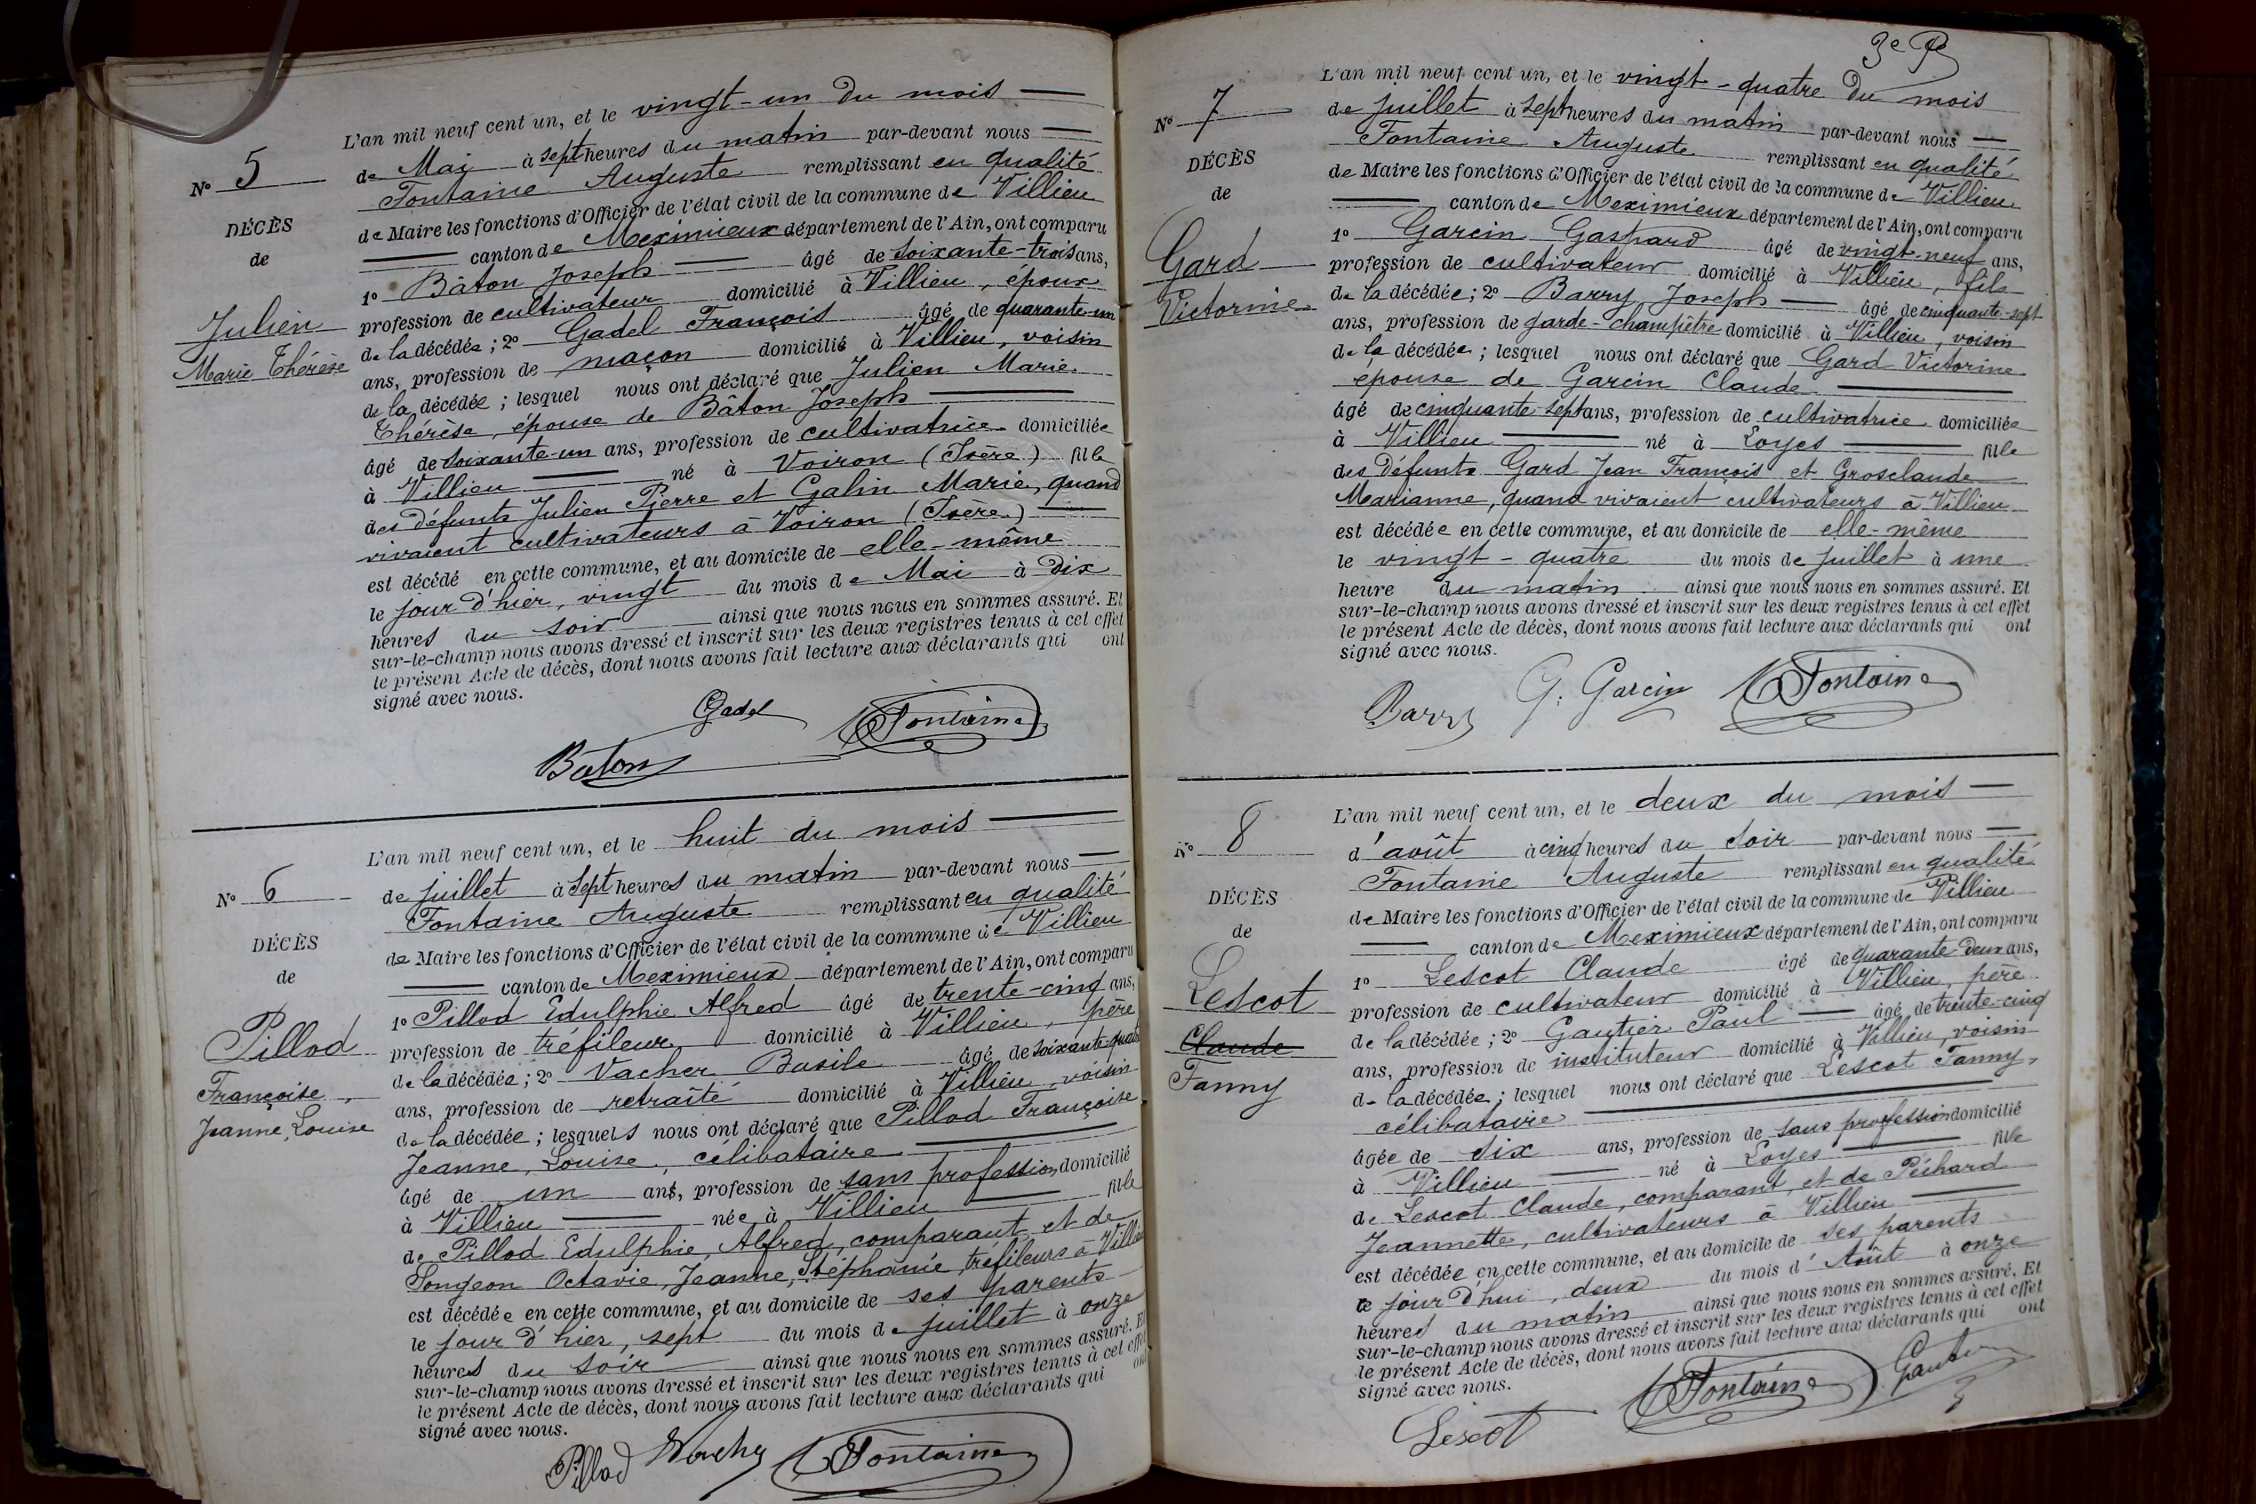 L'an mil neuf cent un, et le vingt-un du mois
de Mai à sept heures du matin par-devant nous
Fontaine Auguste remplissant en qualité
de Maire les fonctions d'Officier de l'état civil de la commune de Villieu
canton de Meximieux département de l'Ain, ont comparu
1° Bâton Joseph âgé de soixante-trois ans,
profession de cultivateur domicilié à Villieu, époux
de la décédée; 2° Gadel François âgé de quarante-un
ans, profession de maçon domicilié à Villieu, voisin
de la décédée; lesquel nous ont déclaré que Julien Marie
Thérèse, épouse de Bâton Joseph
âgé de soixante-un ans, profession de cultivatrice domiciliée
à Villieu né à Voiron (Isère) fille
des défunts Julien Pierre et Galin Marie, quand
vivaient cultivateurs à Voiron (Isère)
est décédé en cette commune, et au domicile de elle-même
le jour d'hier, vingt du mois de Mai à dix
heures du soir ainsi que nous nous en sommes assuré. Et
sur-le-champ nous avons dressé et inscrit sur les deux registres tenus à cet effet
le présent Acte de décès, dont nous avons fait lecture aux déclarants qui ont
signé avec nous.
N° 5
DÉCÈS
de
Julien
Marie Thérèse
Gadel
Fontaine
Bâton
L'an mil neuf cent un, et le huit du mois
de juillet à sept heures du matin par-devant nous
Fontaine Auguste remplissant en qualité
de Maire les fonctions d'Officier de l'état civil de la commune de Villieu
canton de Meximieux département de l'Ain, ont comparu
1° Pillod Edulphie Alfred âgé de trente-cinq ans,
profession de tréfileur domicilié à Villieu, père
de la décédée; 2° Vacher Basile âgé de soixante-quatre
ans, profession de retraité domicilié à Villieu, voisin
de la décédée; lesquels nous ont déclaré que Pillod Françoise
Jeanne, Louise, célibataire
âgé de un ans, profession de sans profession domicilié
à Villieu née à Villieu fille
de Pillod Edulphie, Alfred, comparant et de
Songeon Octavie, Jeanne, Stéphanie, tréfileurs à Villieu
est décédée en cette commune, et au domicile de ses parents
le jour d'hier, sept du mois de juillet à onze
heures du soir ainsi que nous nous en sommes assuré. Et
sur-le-champ nous avons dressé et inscrit sur les deux registres tenus à cet effet
le présent Acte de décès, dont nous avons fait lecture aux déclarants qui ont
signé avec nous.
N° 6
DÉCÈS
de
Pillod
Françoise,
Jeanne, Louise
Pillod Vacher Fontaine
3e
L'an mil neuf cent un, et le vingt-quatre du mois
de juillet à sept heures du matin par-devant nous
Fontaine Auguste remplissant en qualité
de Maire les fonctions d'Officier de l'état civil de la commune de Villieu
canton de Meximieux département de l'Ain, ont comparu
1° Garcin Gaspard âgé de vingt-neuf ans,
profession de cultivateur domicilié à Villieu, fils
de la décédée; 2° Barry Joseph âgé de cinquante-sept
ans, profession de garde-champêtre domicilié à Villieu, voisin
de la décédée; lesquel nous ont déclaré que Gard Victorine
épouse de Garcin Claude
âgé de cinquante-sept ans, profession de cultivatrice domiciliée
à Villieu né à Loyes fille
des défunts Gard Jean François et Grosclaude
Marianne, quand vivaient cultivateurs à Villieu
est décédée en cette commune, et au domicile de elle-même
le vingt-quatre du mois de juillet à une
heure du matin ainsi que nous nous en sommes assuré. Et
sur-le-champ nous avons dressé et inscrit sur les deux registres tenus à cet effet
le présent Acte de décès, dont nous avons fait lecture aux déclarants qui ont
signé avec nous.
N° 7
DÉCÈS
de
Gard
Victorine
Barry G. Garcin Fontaine
L'an mil neuf cent un, et le deux du mois
d'août à cinq heures du soir par-devant nous
Fontaine Auguste remplissant en qualité
de Maire les fonctions d'Officier de l'état civil de la commune de Villieu
canton de Meximieux département de l'Ain, ont comparu
1° Lescot Claude âgé de quarante-deux ans,
profession de cultivateur domicilié à Villieu, père
de la décédée; 2° Gautier Paul âgé de trente-cinq
ans, profession de instituteur domicilié à Villieu, voisin
de la décédée; lesquel nous ont déclaré que Lescot Fanny,
célibataire
âgée de dix ans, profession de sans profession domicilié
à Villieu né à Loyes fille
de Lescot Claude, comparant, et de Péchard
Jeannette, cultivateurs à Villieu
est décédée en cette commune, et au domicile de ses parents
ce jour d'hui, deux du mois d'Août à onze
heures du matin ainsi que nous nous en sommes assuré. Et
sur-le-champ nous avons dressé et inscrit sur les deux registres tenus à cet effet
le présent Acte de décès, dont nous avons fait lecture aux déclarants qui ont
signé avec nous.
N° 8
DÉCÈS
de
Lescot
Claude
Fanny
Lescot Fontaine Gautier